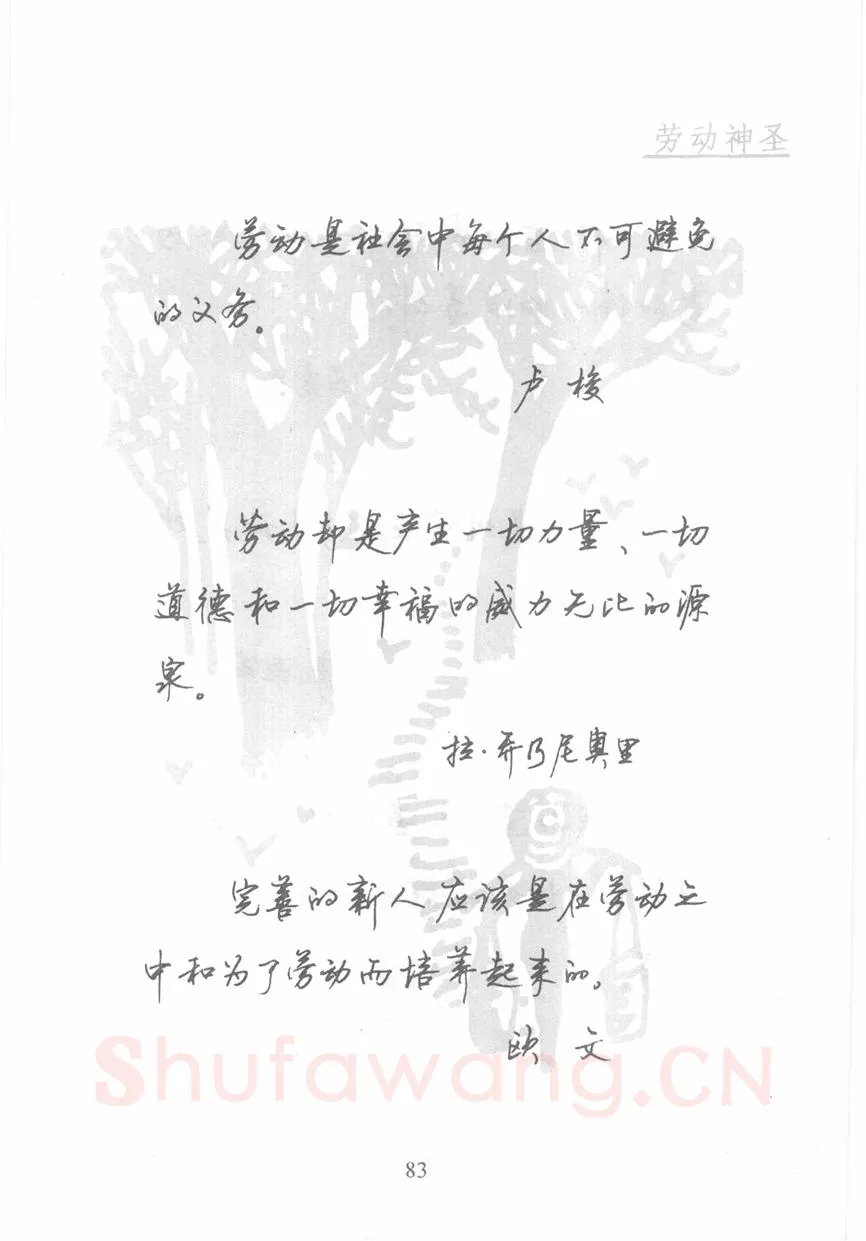 劳动神圣
劳动是社会中每个人不可避免
的义务。
卢梭
劳动却是产生一切力量、一切
道德和一切幸福的威力无比的源
泉。
拉·乔乃尼奥里
完善的新人应该是在劳动之
中和为了劳动而培养起来的。
欧文
Shufawang.CN
83